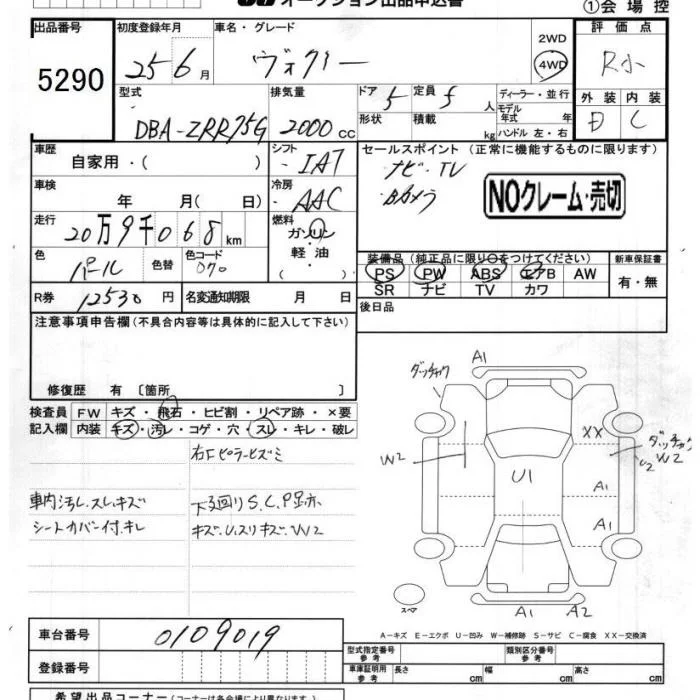 オークション出品申込書
①会場控
出品番号 5290
初度登録年月 25 6月
車名・グレード ヴォクシー
2WD
4WD
評価点 R小
外装 内装
D C
型式 DBA-ZRR75G
排気量 2000cc
ドア 5 定員 5人
形状 積載 kg
ディーラー・並行
モデル年式 年
ハンドル 左・右
車歴 自家用・( )
シフト IAT
セールスポイント (正常に機能するものに限ります)
ナビ・TV
Bカメラ
NOクレーム・売切
車検 年 月( 日)
冷房 AAC
走行 20万9千068km
燃料 ガソリン
軽油
( )
色 パール 色替 色コード 070
装備品 (純正品に限り○をつけてください)
PS PW ABS エアB AW
SR ナビ TV カワ
新車保証書
有・無
R券 12530円 名変通知期限 月 日
後日品
注意事項申告欄(不具合内容等は具体的に記入して下さい)
修復歴 有〔箇所 〕
検査員 FW キズ・飛石・ヒビ割・リペア跡・×要
記入欄 内装 キズ・汚レ・コゲ・穴・スレ・キレ・破レ
右Fピラーヒズミ
車内汚レ.スレ.キズ 下廻りS.C.P跡.
シートカバー付.キレ キズ.U.スリキズ.W2
A1
ダッチャク
XX
ダッチャク
W2
U2 W2
U1
A1
A1
スペア
A1 A2
A-キズ E-エクボ U-凹み W-補修跡 S-サビ C-腐食 XX-交換済
車台番号 0109019
登録番号
型式指定番号 参考
類別区分番号 参考
車庫証明用 参考 長さ cm 幅 cm 高さ cm
希望出品コーナー(コーナーは各会場により異なります)